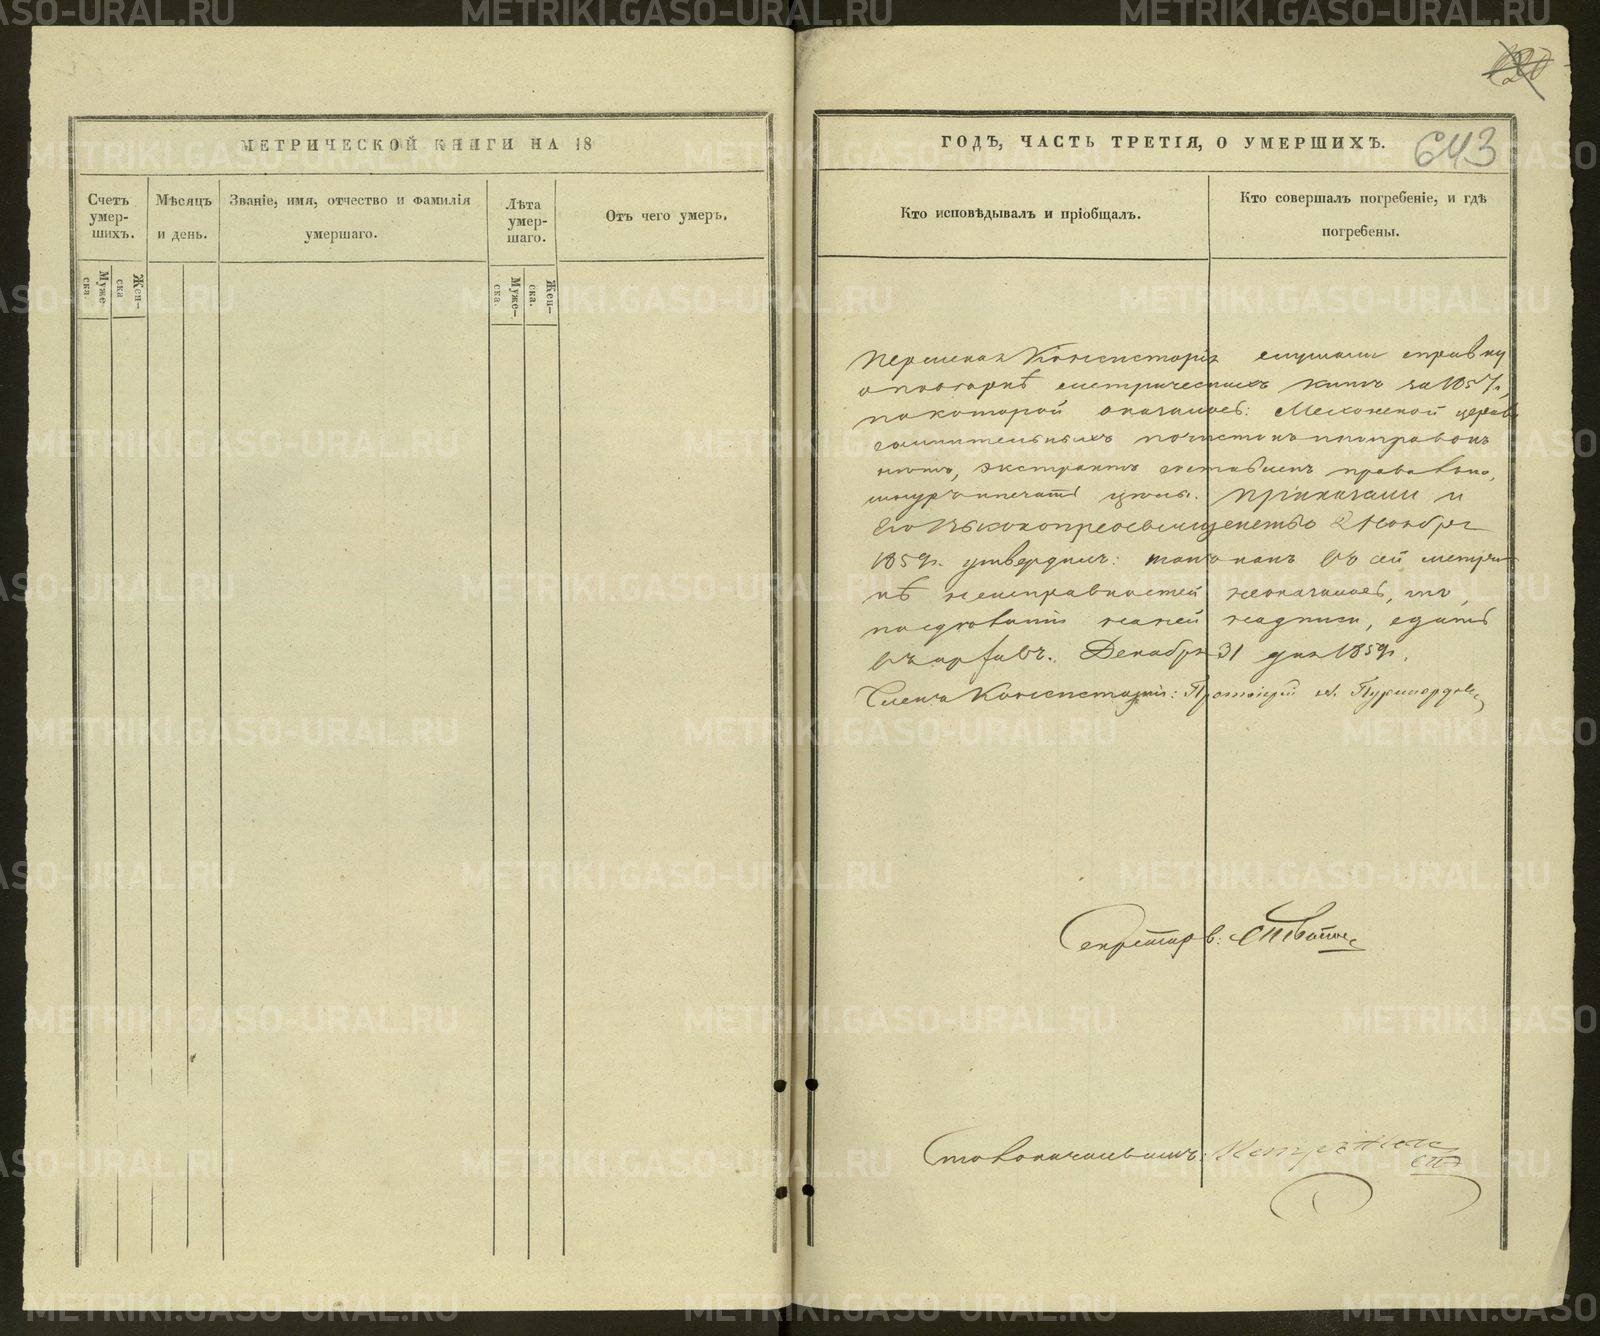 120
МЕТРИЧЕСКОЙ КНИГИ НА 18
ГОДЪ, ЧАСТЬ ТРЕТІЯ, О УМЕРШИХЪ.
643
Счетъ умер-шихъ.
Мѣсяцъ и день.
Званіе, имя, отчество и фамилія умершаго.
Лѣта умер-шаго.
Отъ чего умеръ.
Кто исповѣдывалъ и пріобщалъ.
Кто совершалъ погребеніе, и гдѣ погребены.
Муже-ска.
Жен-ска
Муже-ска.
Жен-ска.
Пермская Консисторія слушали справку
о повѣркѣ метрическихъ книгъ за 1857 г.,
по которой оказалось: Мехонской церкви
сомнительныхъ почистокъ и поправокъ
нѣтъ, экстрактъ составленъ правильно,
шнуръ и печать цѣлы. Приказали и
Его Высокопреосвященство 2 Ноября
1859 г. утвердилъ: такъ какъ въ сей метри-
кѣ неисправностей не оказалось, то,
по сдѣланіи на ней надписи, сдать
въ архивъ. Декабря 31 дня 1859 г.
Членъ Консисторіи: Протоіерей
Секретарь:
Столоначальникъ:
METRIKI.GASO-URAL.RU